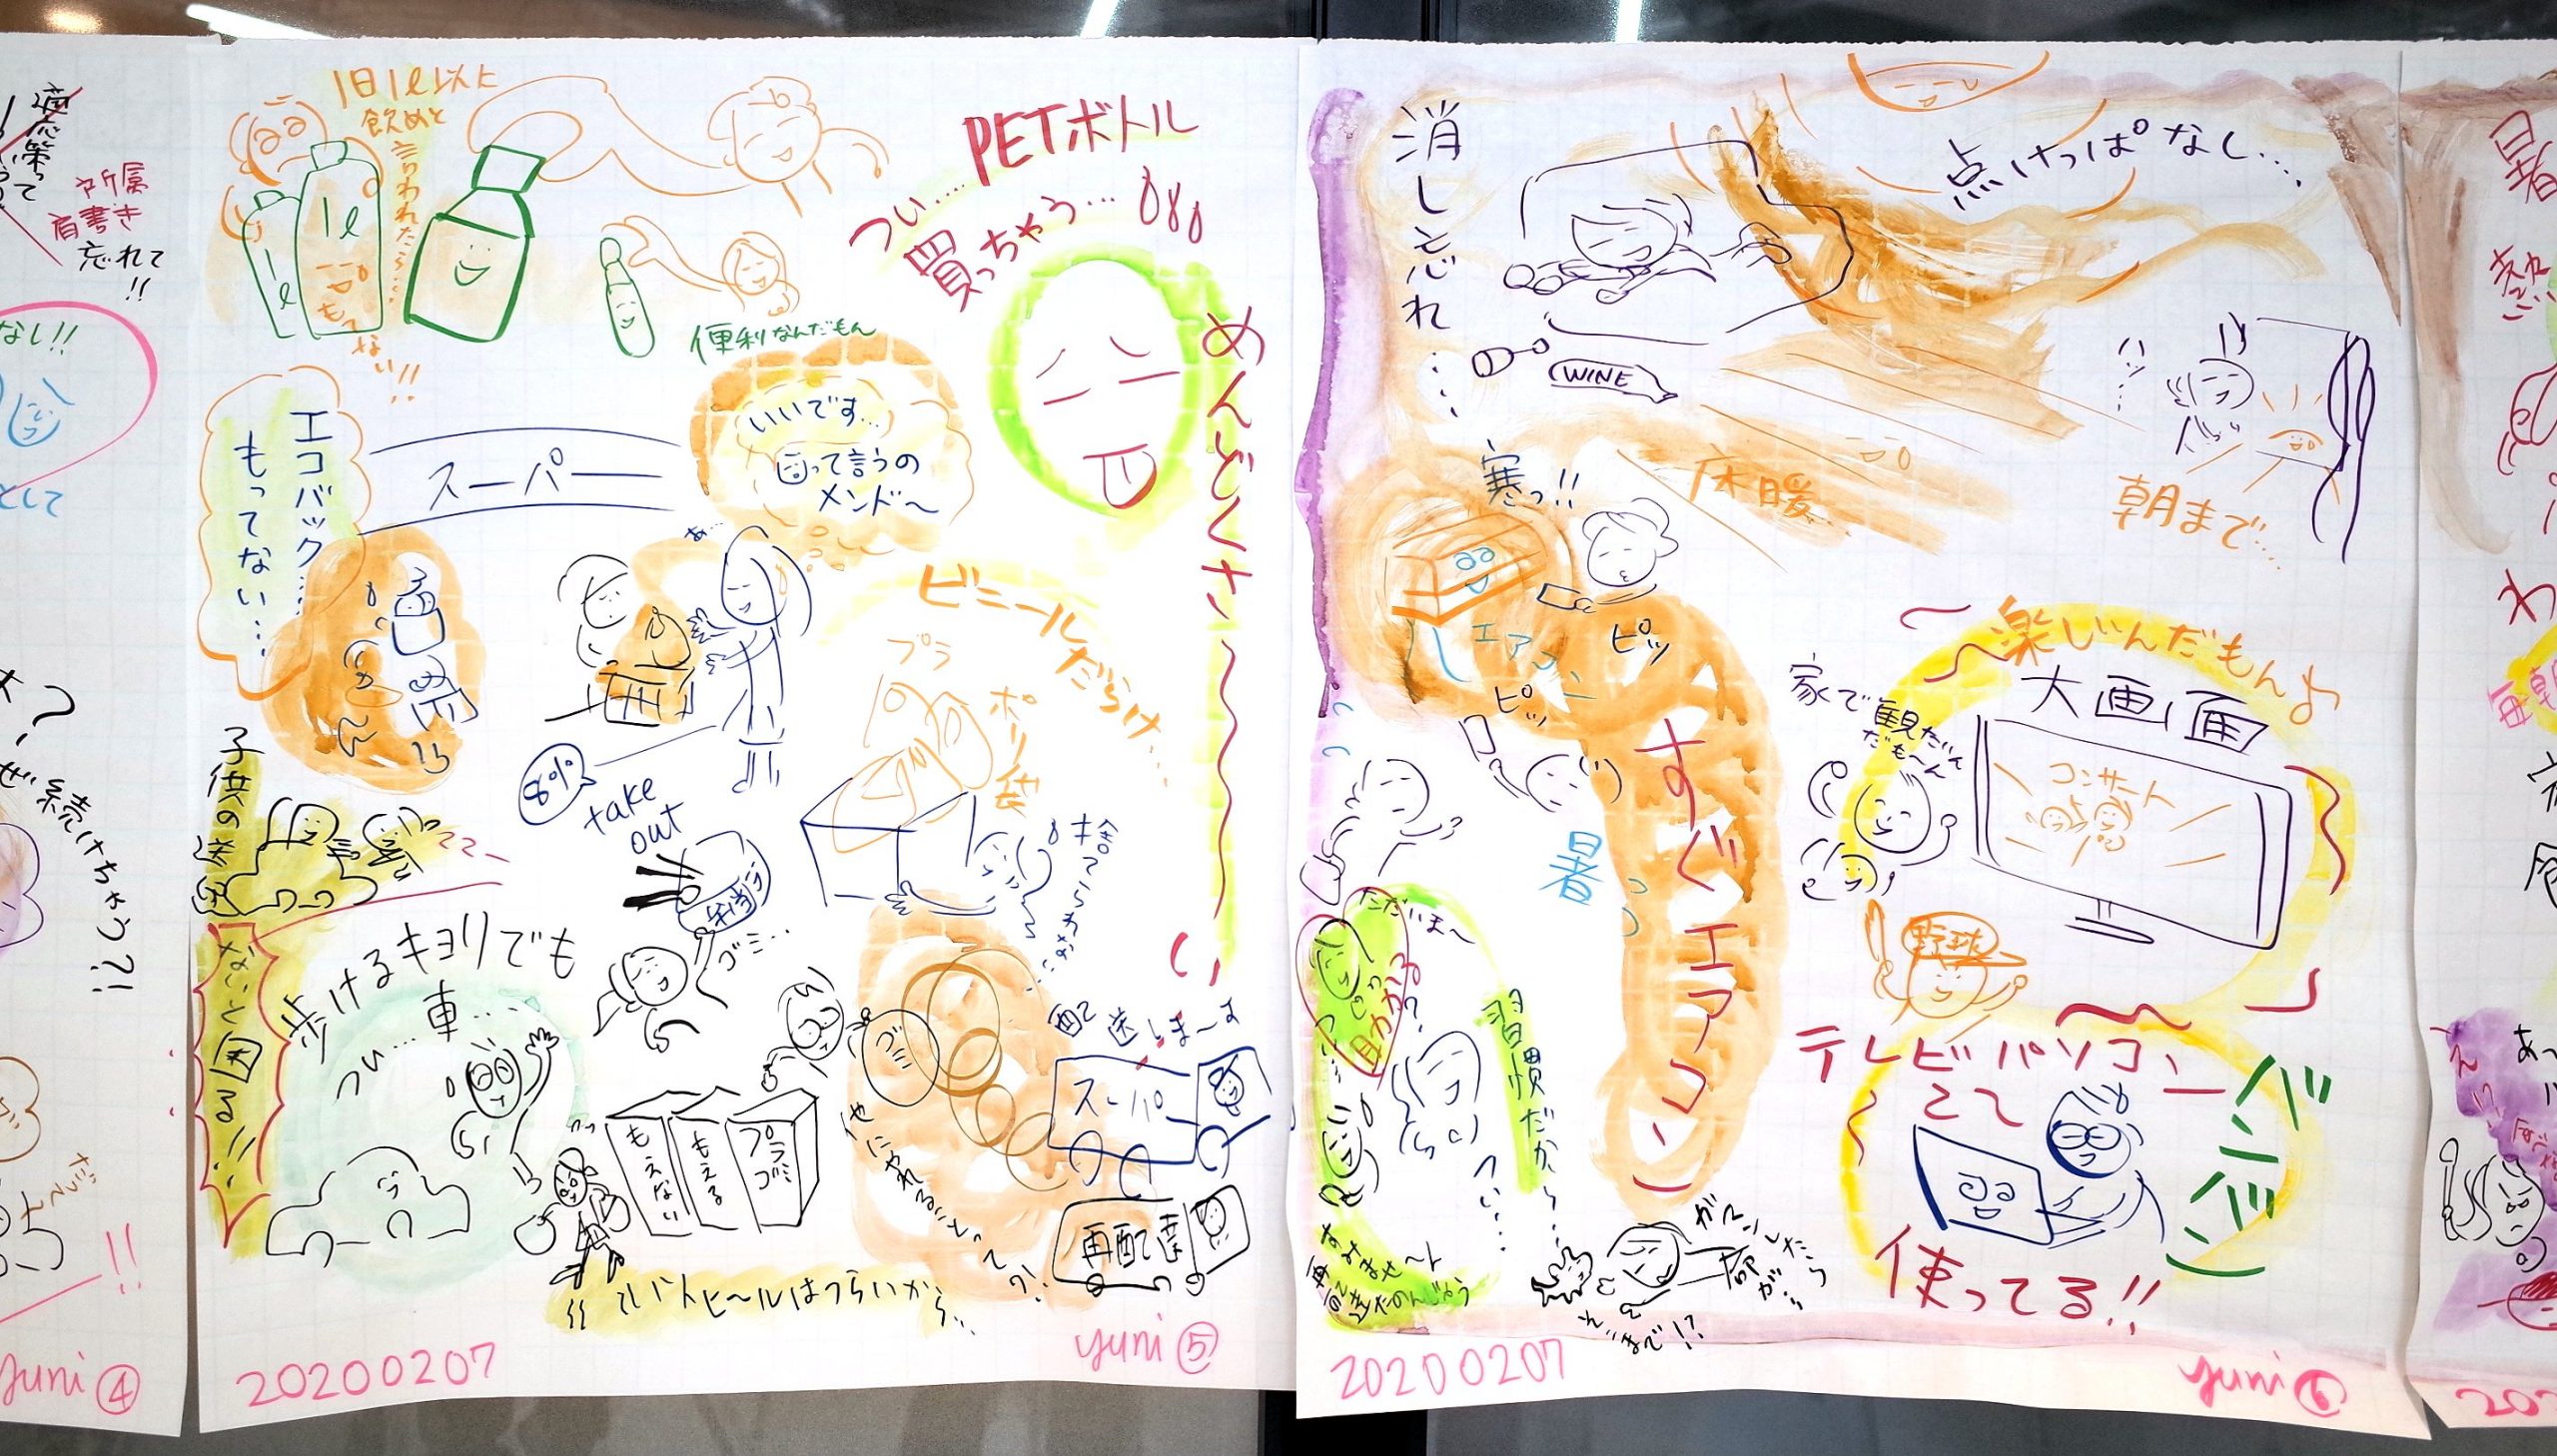 所属
肩書き
忘れて
!!
なし!!
として
続けちゃう?!
yuni ④
1日1ℓ以上
飲めと
言われたら…
1ℓ
もてない!!
便利なんだもん
PETボトル
つい…
買っちゃう…
めんどくさ〜い
エコバック…
もってない…
スーパー
いいです…
って言うの
メンド〜
みかん
8%
take
out
弁当
ゴミ…
ビニールだらけ…
プラ
ポリ袋
捨てられない…
子供の送迎
ないと困る!!
歩けるキョリでも
つい…車…
もえない
もえる
プラゴミ
ゴミ
他にやれることって?!
ハイヒールはつらいから…
配送しま〜す
スーパー
再配達
20200207
yuni ⑤
消し忘れ…
点けっぱなし…
WINE
朝まで…
寒っ!!
床暖
エアコン
ピッ
ピッ
暑
すぐエアコン
楽しいんだもんね
大画面
家で観たいんだも〜ん
コンサート
野球
ただいま〜
習慣だから…
つい…
すみませ〜ん
ガマンしたら命が…
そこまで!?
テレビパソコン
バンバン
使ってる!!
20200207
yuni ⑥
暑